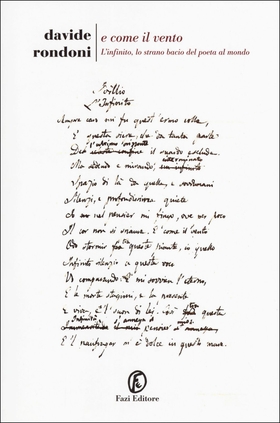 davide
rondoni
e come il vento
L'infinito, lo strano bacio del poeta al mondo
Idillio
L'Infinito
Sempre caro mi fu quest'ermo colle,
E questa siepe, che da tanta parte
l'ultimo orizzonte
De il guardo esclude.
Ma sedendo e mirando, interminato
Spazio di là da quella, e sovrumani
Silenzi, e profondissima quiete
Io nel pensier mi fingo, ove per poco
Il cor non si spaura. E come il vento
Odo stormir fra queste piante, io quello
Infinito silenzio a questa voce
Vo comparando: E mi sovvien l'eterno,
E le morte stagioni, e la presente
E viva, e 'l suon di lei. Così fra questa
il pensier mio
E 'l naufragar m'è dolce in questo mare.
Fazi Editore